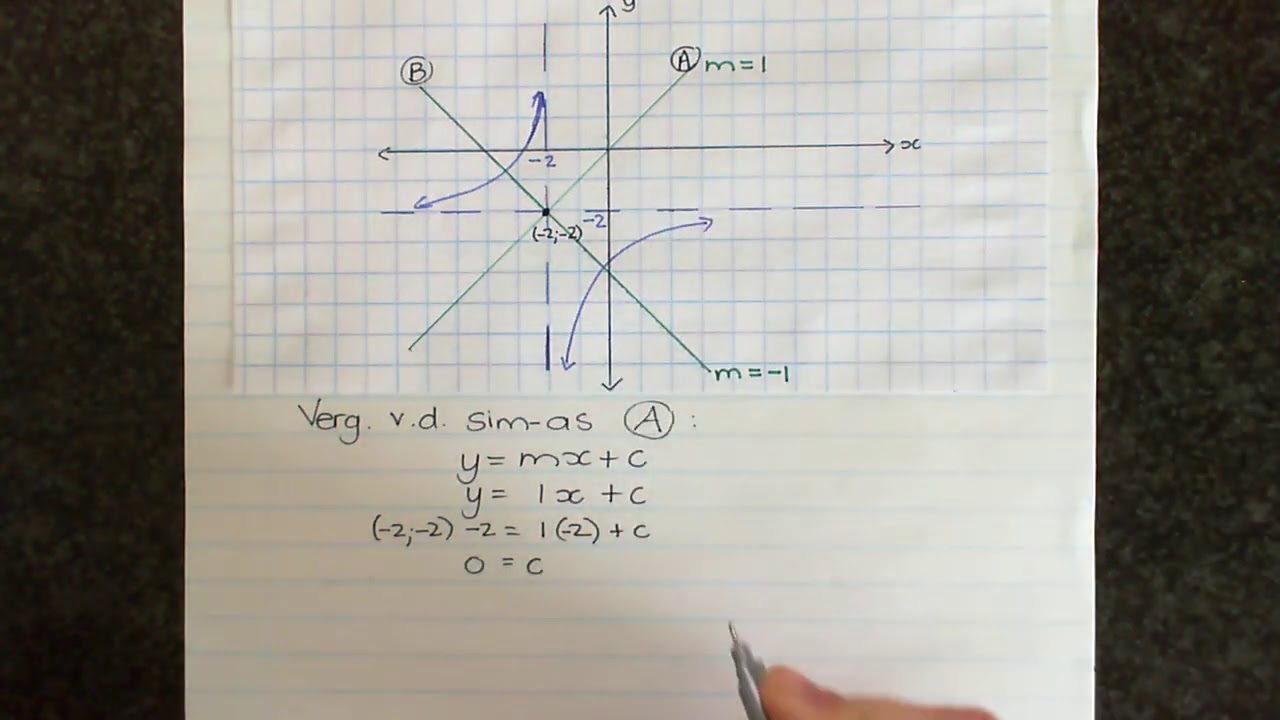 y
Ⓑ
Ⓐ m = 1
x
-2
-2
(-2;-2)
m = -1
Verg. v.d. sim-as Ⓐ :
y = mx + c
y = 1x + c
(-2;-2) -2 = 1(-2) + c
0 = c